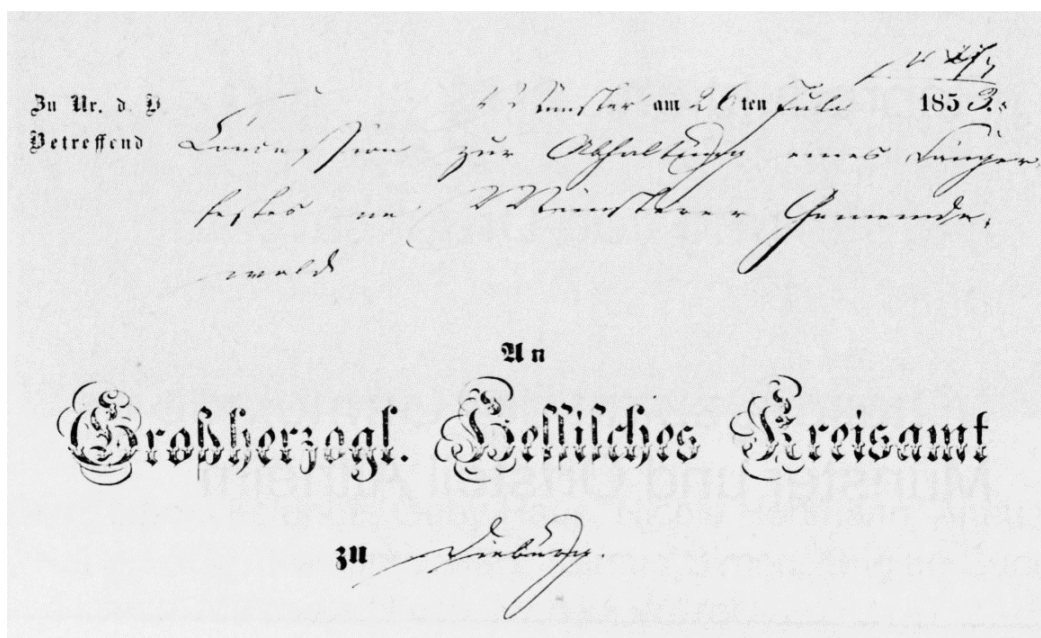 Zu Nr. d. B Münster am 26ten Juli 1853.
Betreffend Concession zur Abhaltung eines Sänger-
festes im Münsterer Gemeinde-
wald
An
Großherzogl. Hessisches Kreisamt
zu Dieburg.